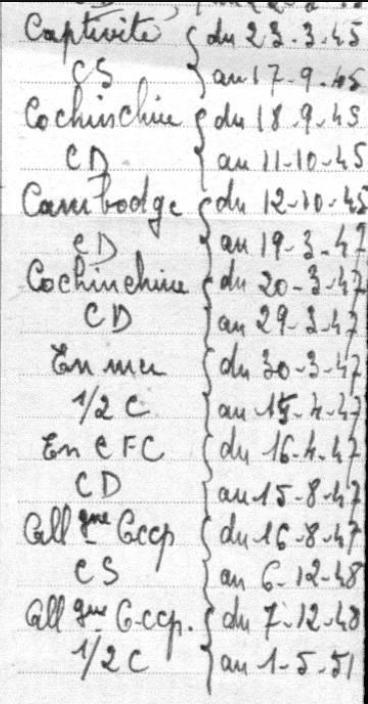 Captivité { du 23-3-45
CS au 17-9-45
Cochinchine { du 18-9-45
CD au 11-10-45
Cambodge { du 12-10-45
CD au 19-3-47
Cochinchine { du 20-3-47
CD au 29-3-47
En mer { du 30-3-47
1/2 C au 15-4-47
En CFC { du 16-4-47
CD au 15-8-47
All gne Occp { du 16-8-47
CS au 6-12-48
All gne Occp. { du 7-12-48
1/2 C au 1-5-51